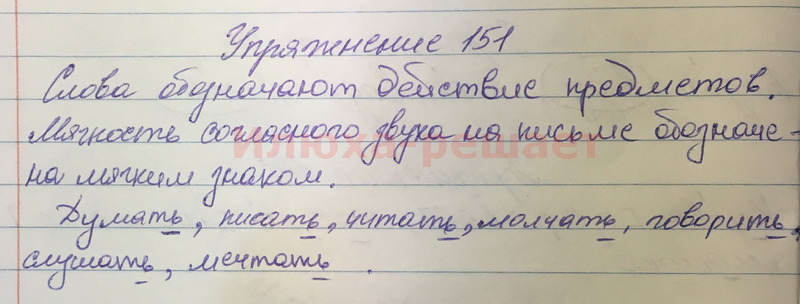 Упражнение 151
Слова обозначают действие предметов.
Мягкость согласного звука на письме обозначе-
на мягким знаком.
Думать, писать, читать, молчать, говорить,
слушать, мечтать.
илюха-решает